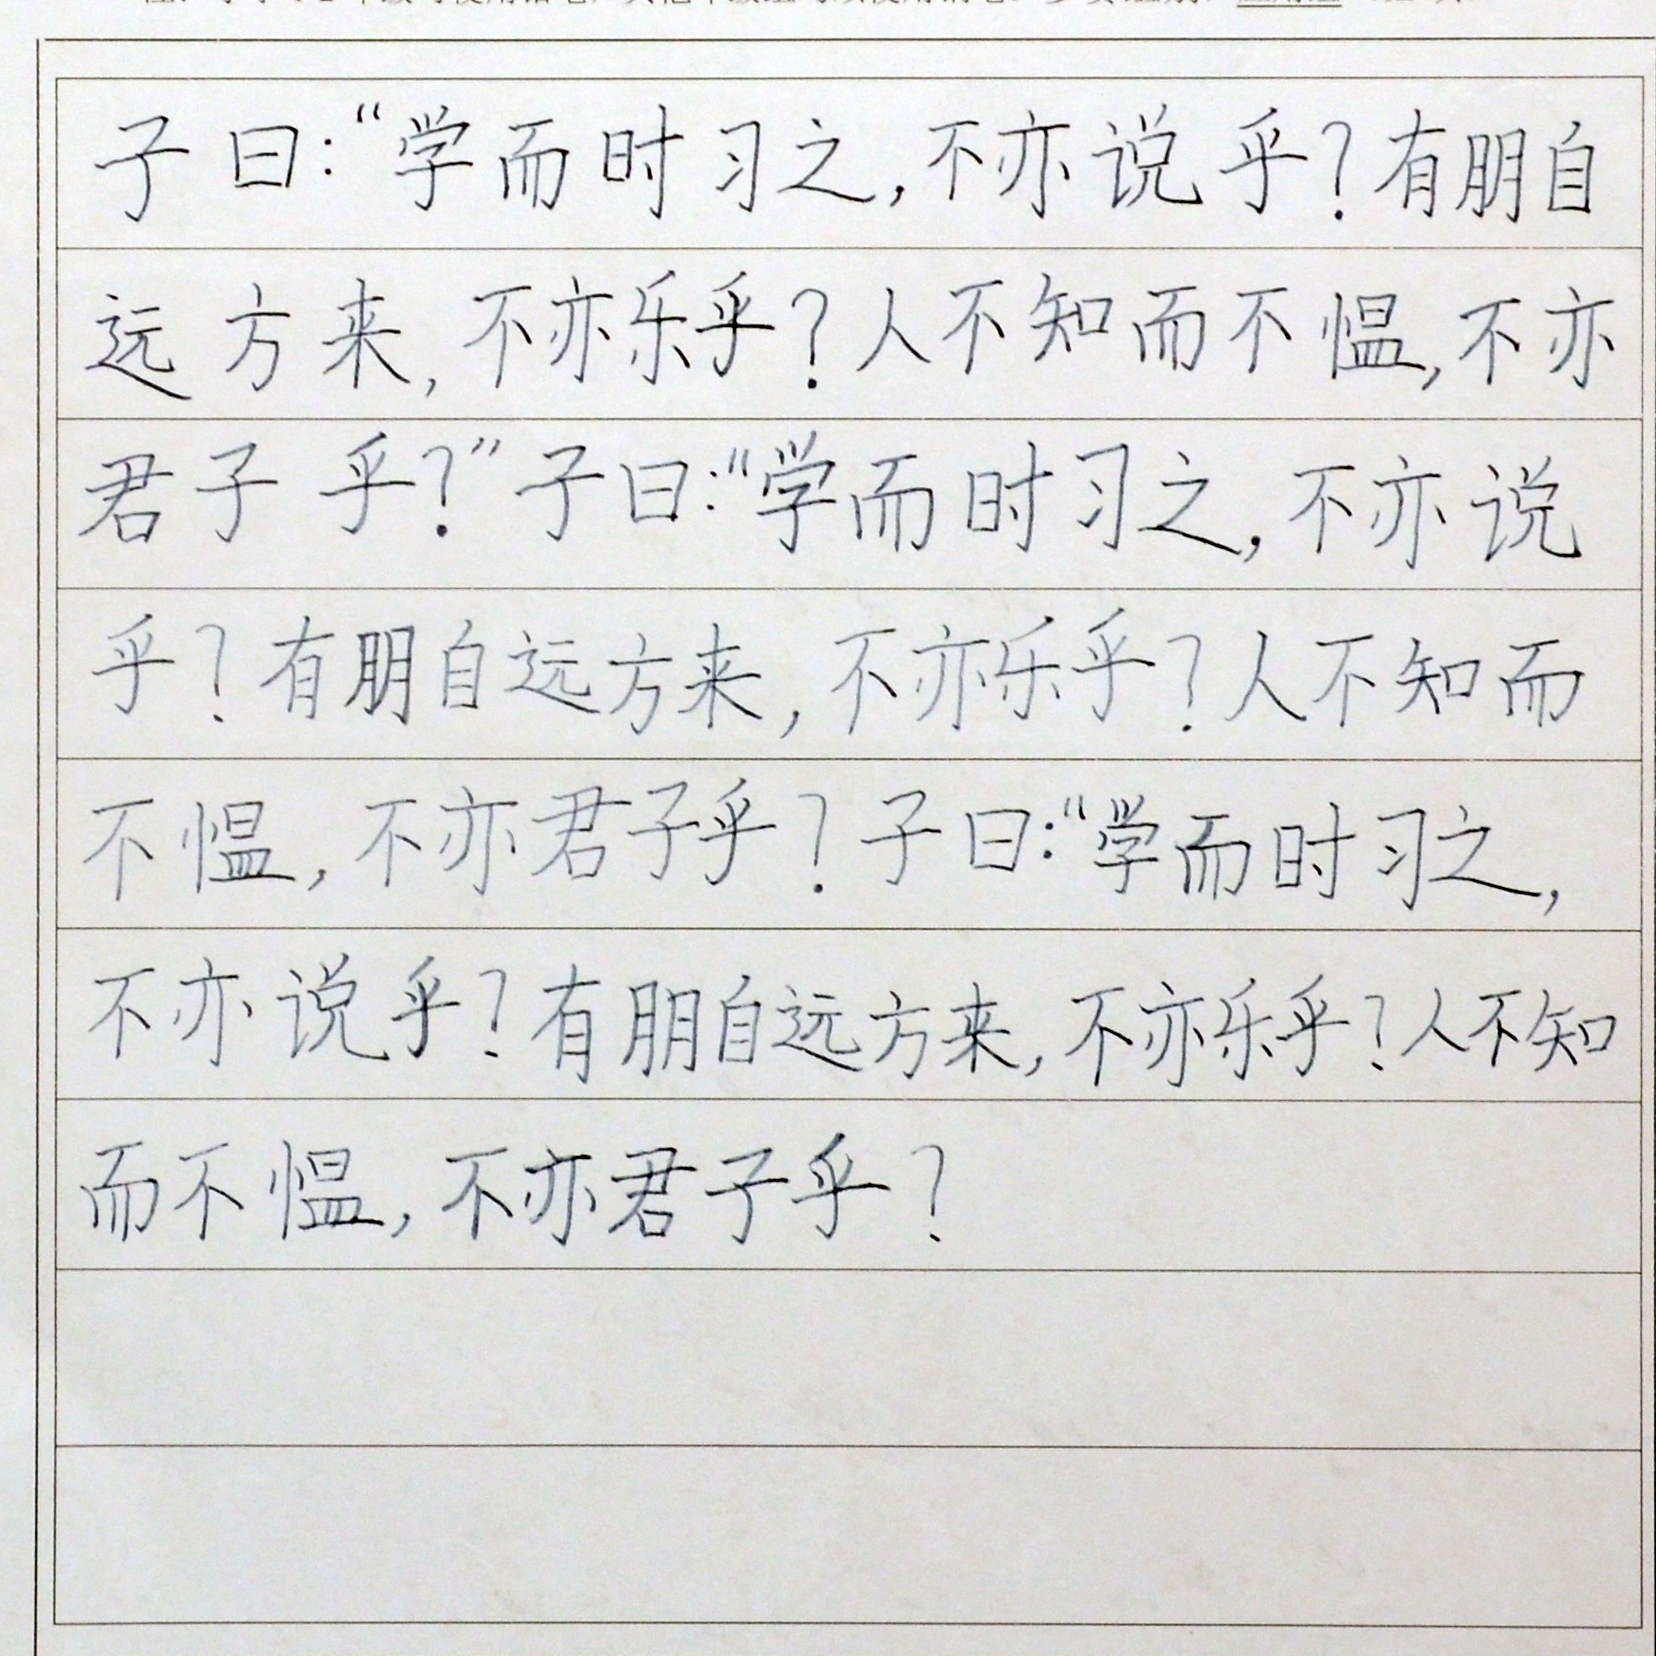 子曰:“学而时习之,不亦说乎?有朋自
远方来,不亦乐乎?人不知而不愠,不亦
君子乎?”子曰:“学而时习之,不亦说
乎?有朋自远方来,不亦乐乎?人不知而
不愠,不亦君子乎?子曰:“学而时习之,
不亦说乎?有朋自远方来,不亦乐乎?人不知
而不愠,不亦君子乎?